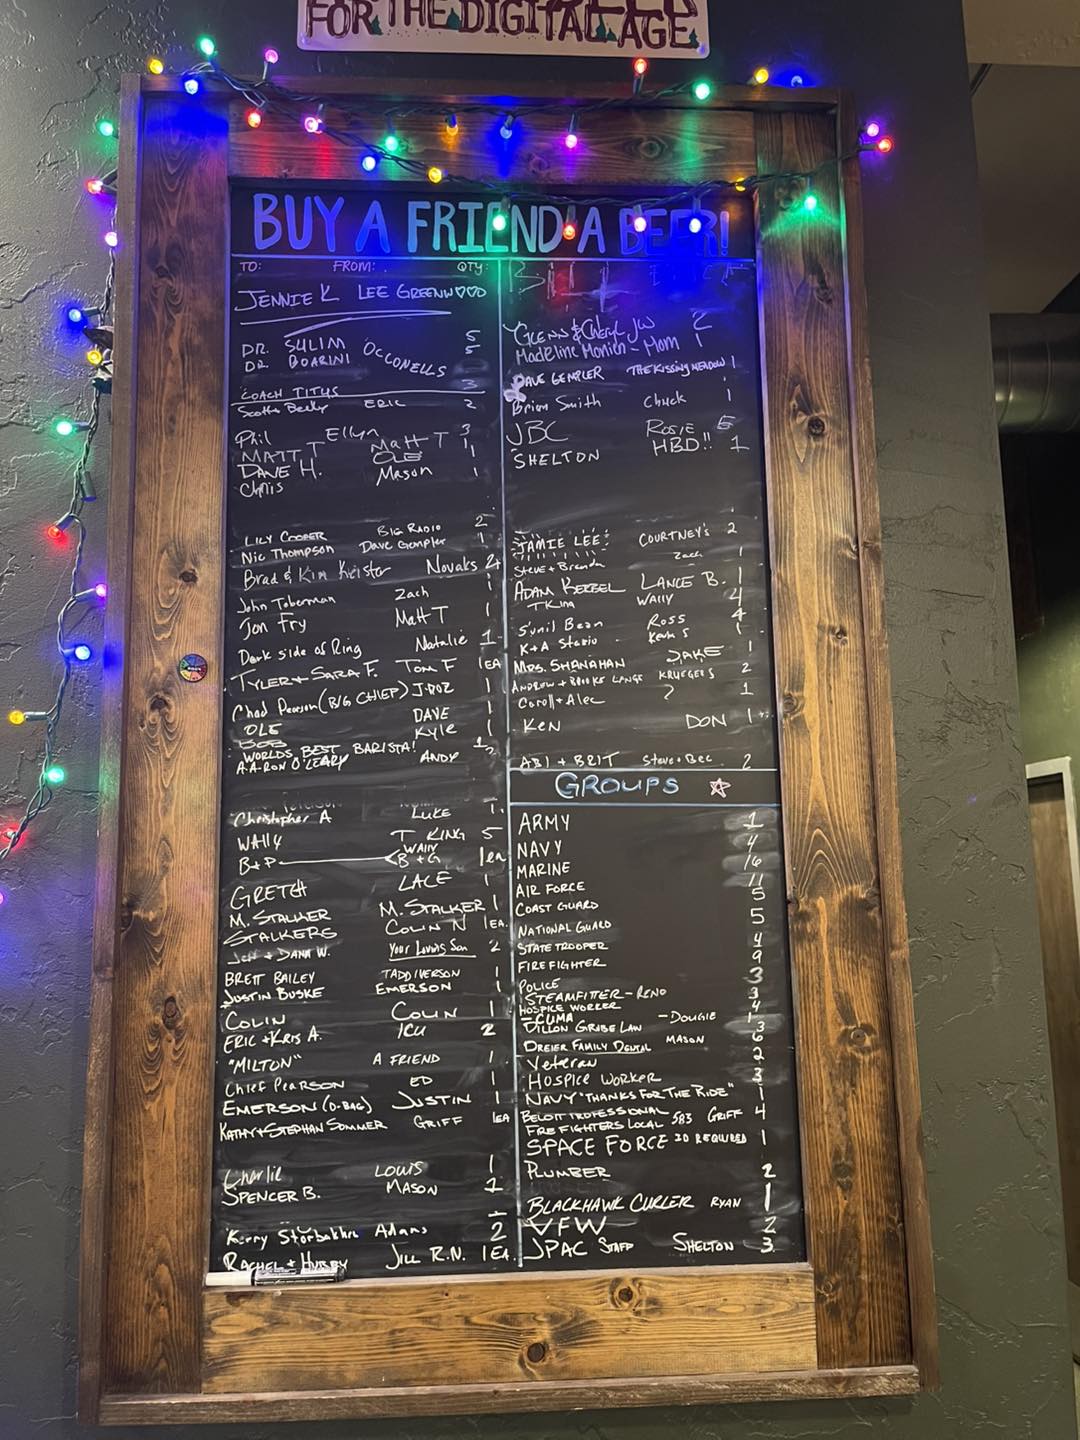 FOR THE DIGITAL AGE
BUY A FRIEND A BEER!
TO: FROM: QTY:
JENNIE K LEE GREENW♡♡D
DR. SULIM 5
DR. BOARINI OCCONELLS 5
COACH TITUS 3
Scott + Becky ERIC 2
Phil Ellyn 3
MATT T Matt T 1
DAVE H. OLE 1
Chris Mason 1
LILY COOPER BIG RADIO 2
Nic Thompson Dave Gempler 1
Brad & Kim Keister Novaks 2
John Toberman Zach 1
Jon Fry Matt T 1
Dark side of Ring Natalie 1
TYLER + SARA F. TOM F 1EA
Chad Pearson (BIG CHIEF) J-ROZ 1
OLE DAVE 1
BOB Kyle 1
WORLDS BEST BARISTA!
A.A.RON O'LEARY ANDY 1
Christopher A LUKE 1
WALLY T KING 5
B+P WALLY B+G 1ea
GRETCH LACE 1
M. STALKER M. STALKER 1
STALKERS COLIN N 1EA.
Jeff + DANA W. Your Loving Son 2
BRETT BAILEY TADD IVERSON 1
JUSTIN BUSKE EMERSON 1
COLIN COLIN 1
ERIC + KRIS A. ICU 2
"MILTON" A FRIEND 1
Chief Pearson ED 1
EMERSON (D-BAG) JUSTIN 1
KATHY + STEPHAN SOMMER GRIFF 1EA
Charlie LOUIS 1
SPENCER B. MASON 1
Kerry Storbakken Adams 2
RACHEL + HUBBY JILL R.N. 1EA.
GLENN & Cheryl JW 2
Madeline Monien - Mom 1
DAVE GEMPLER THE KISSING MEADOW 1
Brian Smith Chuck 1
JBC ROSIE 5
SHELTON HBD!! 1
JAMIE LEE COURTNEY'S 2
Steve + Brenda Zach 1
ADAM KERBEL LANCE B. 1
T King WALLY 4
Sunil Bean ROSS 4
K+A Stario Kevin S 1
MRS. SHANAHAN JAKE 1
ANDREW + BROOKE LANGE KRUEGERS 2
Caroll + Alec ? 1
KEN DON 1
ABI + BRIT Steve + Bec 2
GROUPS ☆
ARMY 1
NAVY 4
MARINE 16
AIR FORCE 11
COAST GUARD 5
NATIONAL GUARD 5
STATE TROOPER 4
FIRE FIGHTER 9
POLICE 3
STEAMFITTER - RENO 3
HOSPICE WORKER 4
- CUMA - DOUGIE 1
DILLON GRIBE LAW 3
DREIER FAMILY DENTAL MASON 6
Veteran 2
HOSPICE WORKER 3
NAVY "THANKS FOR THE RIDE" 1
BELOIT PROFESSIONAL
FIRE FIGHTERS LOCAL 583 GRIFF 4
SPACE FORCE ID REQUIRED 1
PLUMBER 2
BLACKHAWK CURLER RYAN 1
VFW 2
JPAC STAFF SHELTON 3